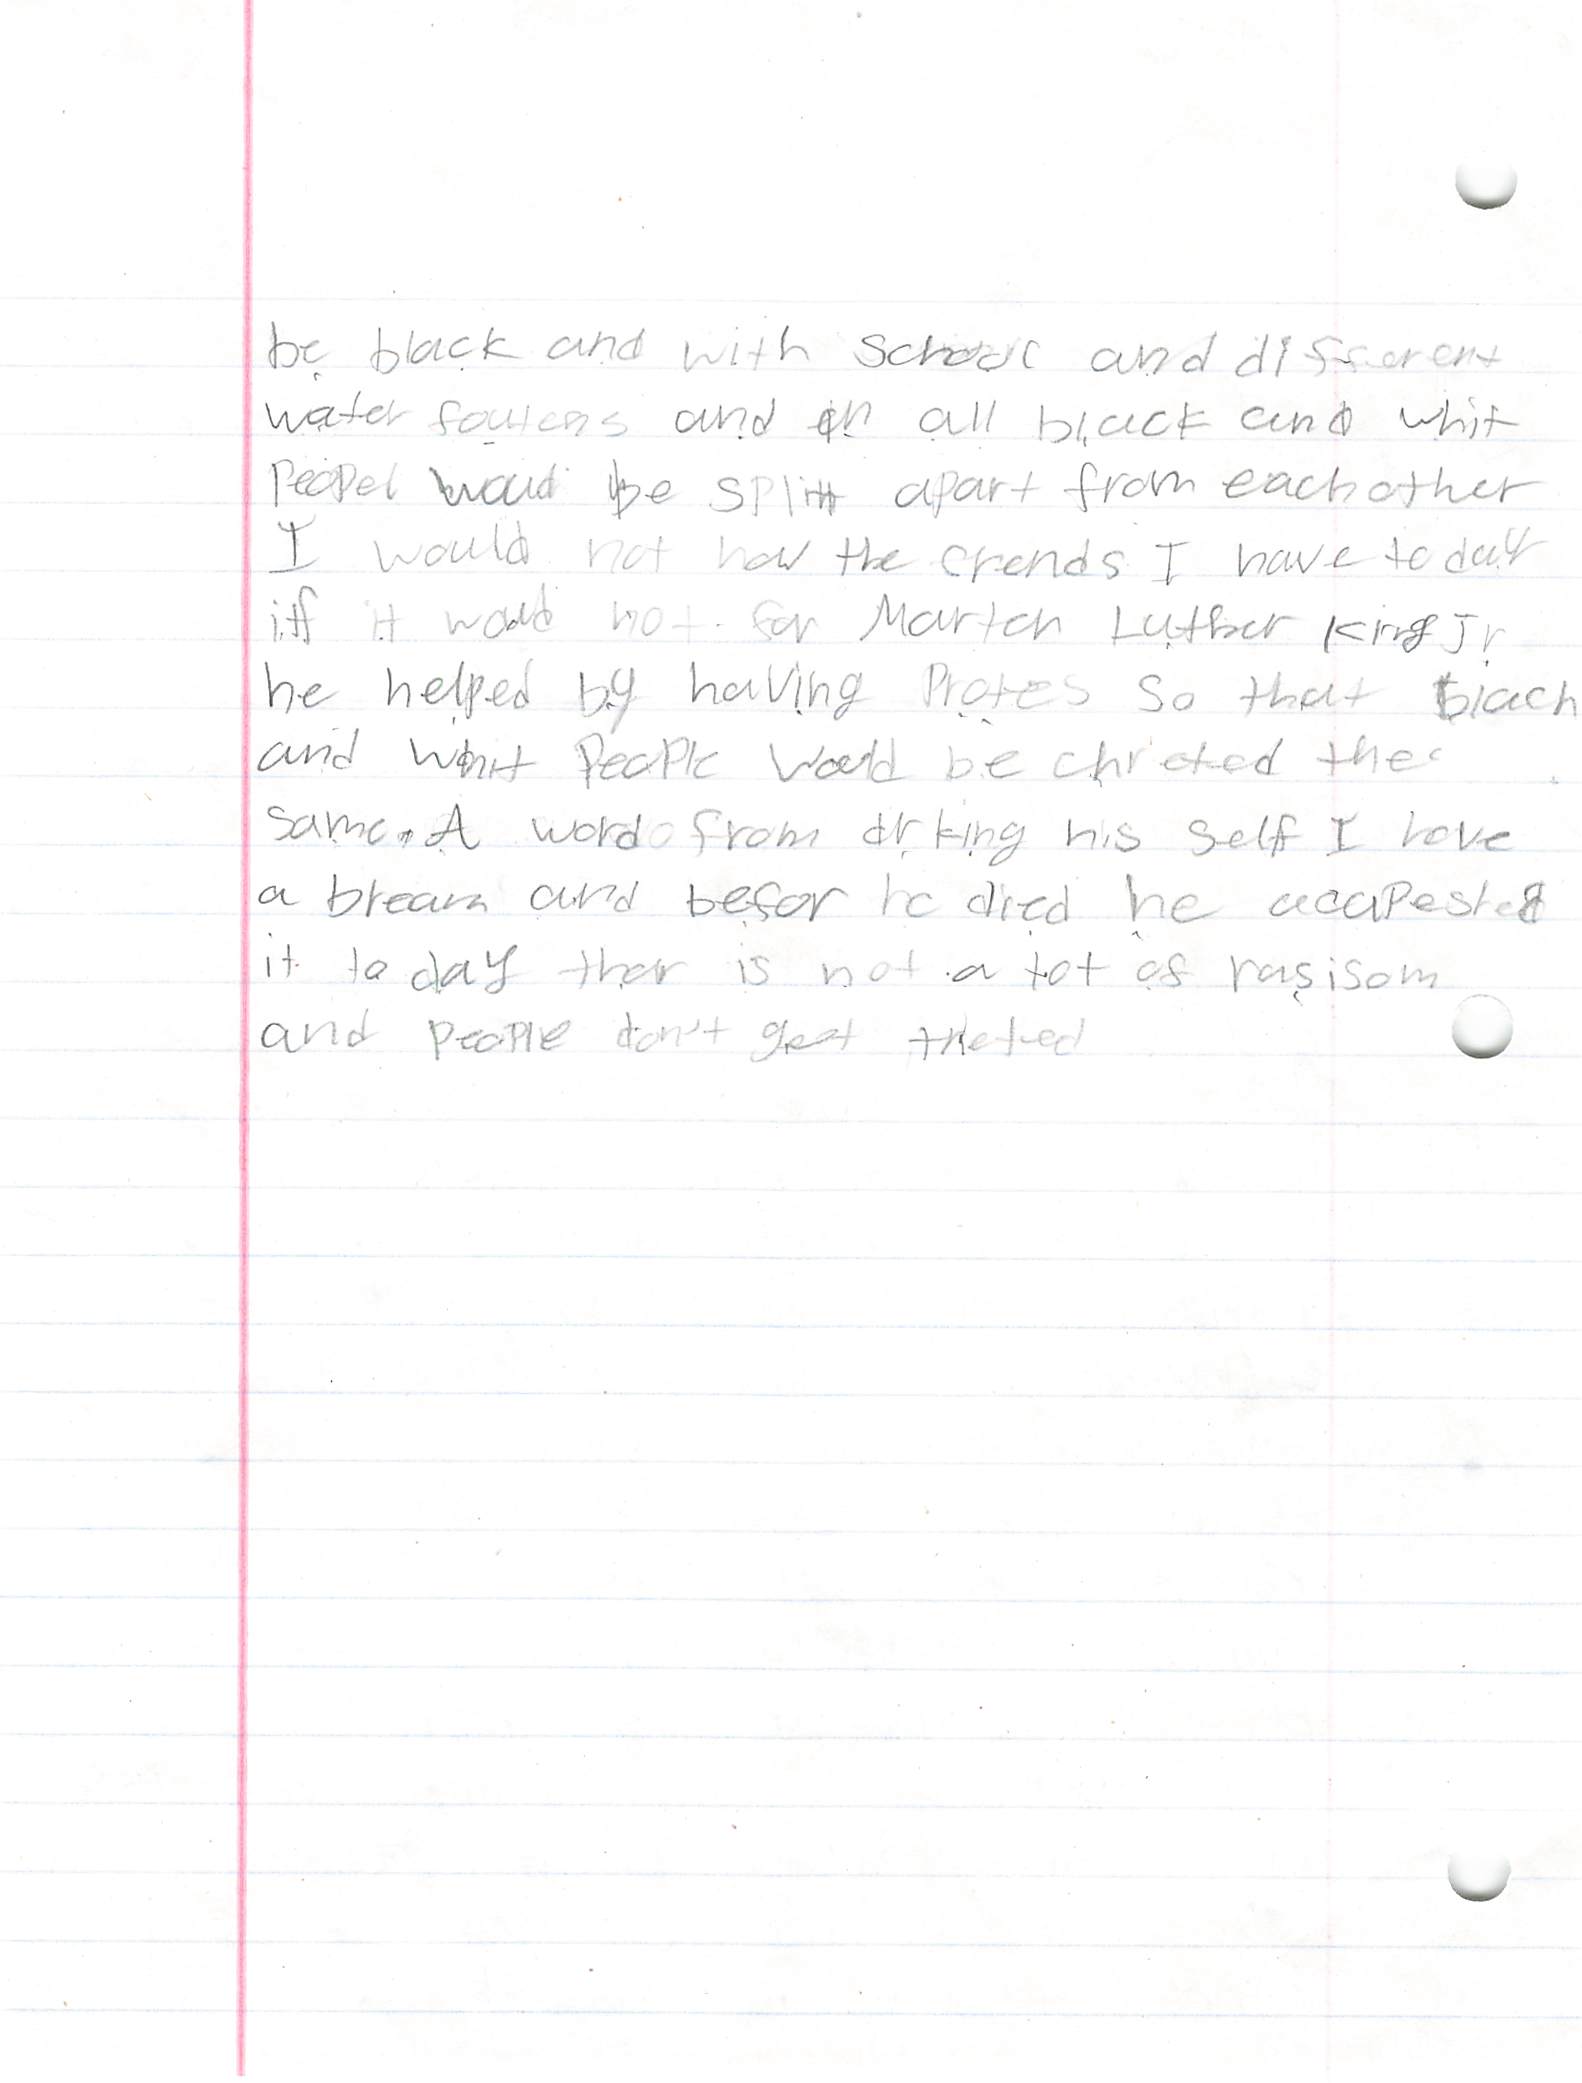 be black and with school and different
water foutens and in all black and whit
peopel would be split apart from eachother
I would not hav the crends I have to day
iff it would not for Marten Luther King Jr
he helped by having Protes so that blach
and whit People would be chrieted the
same. A word from dr king his self I have
a bream and befor he died he accapested
it to day ther is not a lot of rasisom
and people don't geat trieted